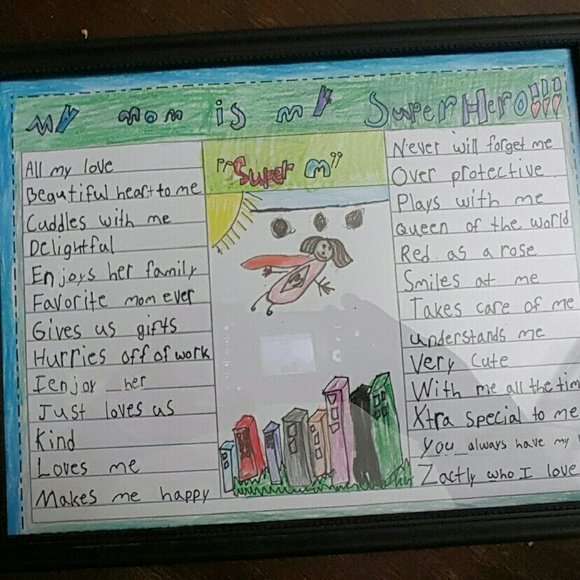 My mom is my SuperHero!!!
All my love
Beautiful heart to me
Cuddles with me
Delightful
Enjoys her family
Favorite mom ever
Gives us gifts
Hurries off of work
I enjoy her
Just loves us
Kind
Loves me
Makes me happy
"Super M"
Never will forget me
Over protective
Plays with me
Queen of the world
Red as a rose
Smiles at me
Takes care of me
understands me
Very cute
With me all the tim
Xtra special to me
You always have my
Zactly who I love